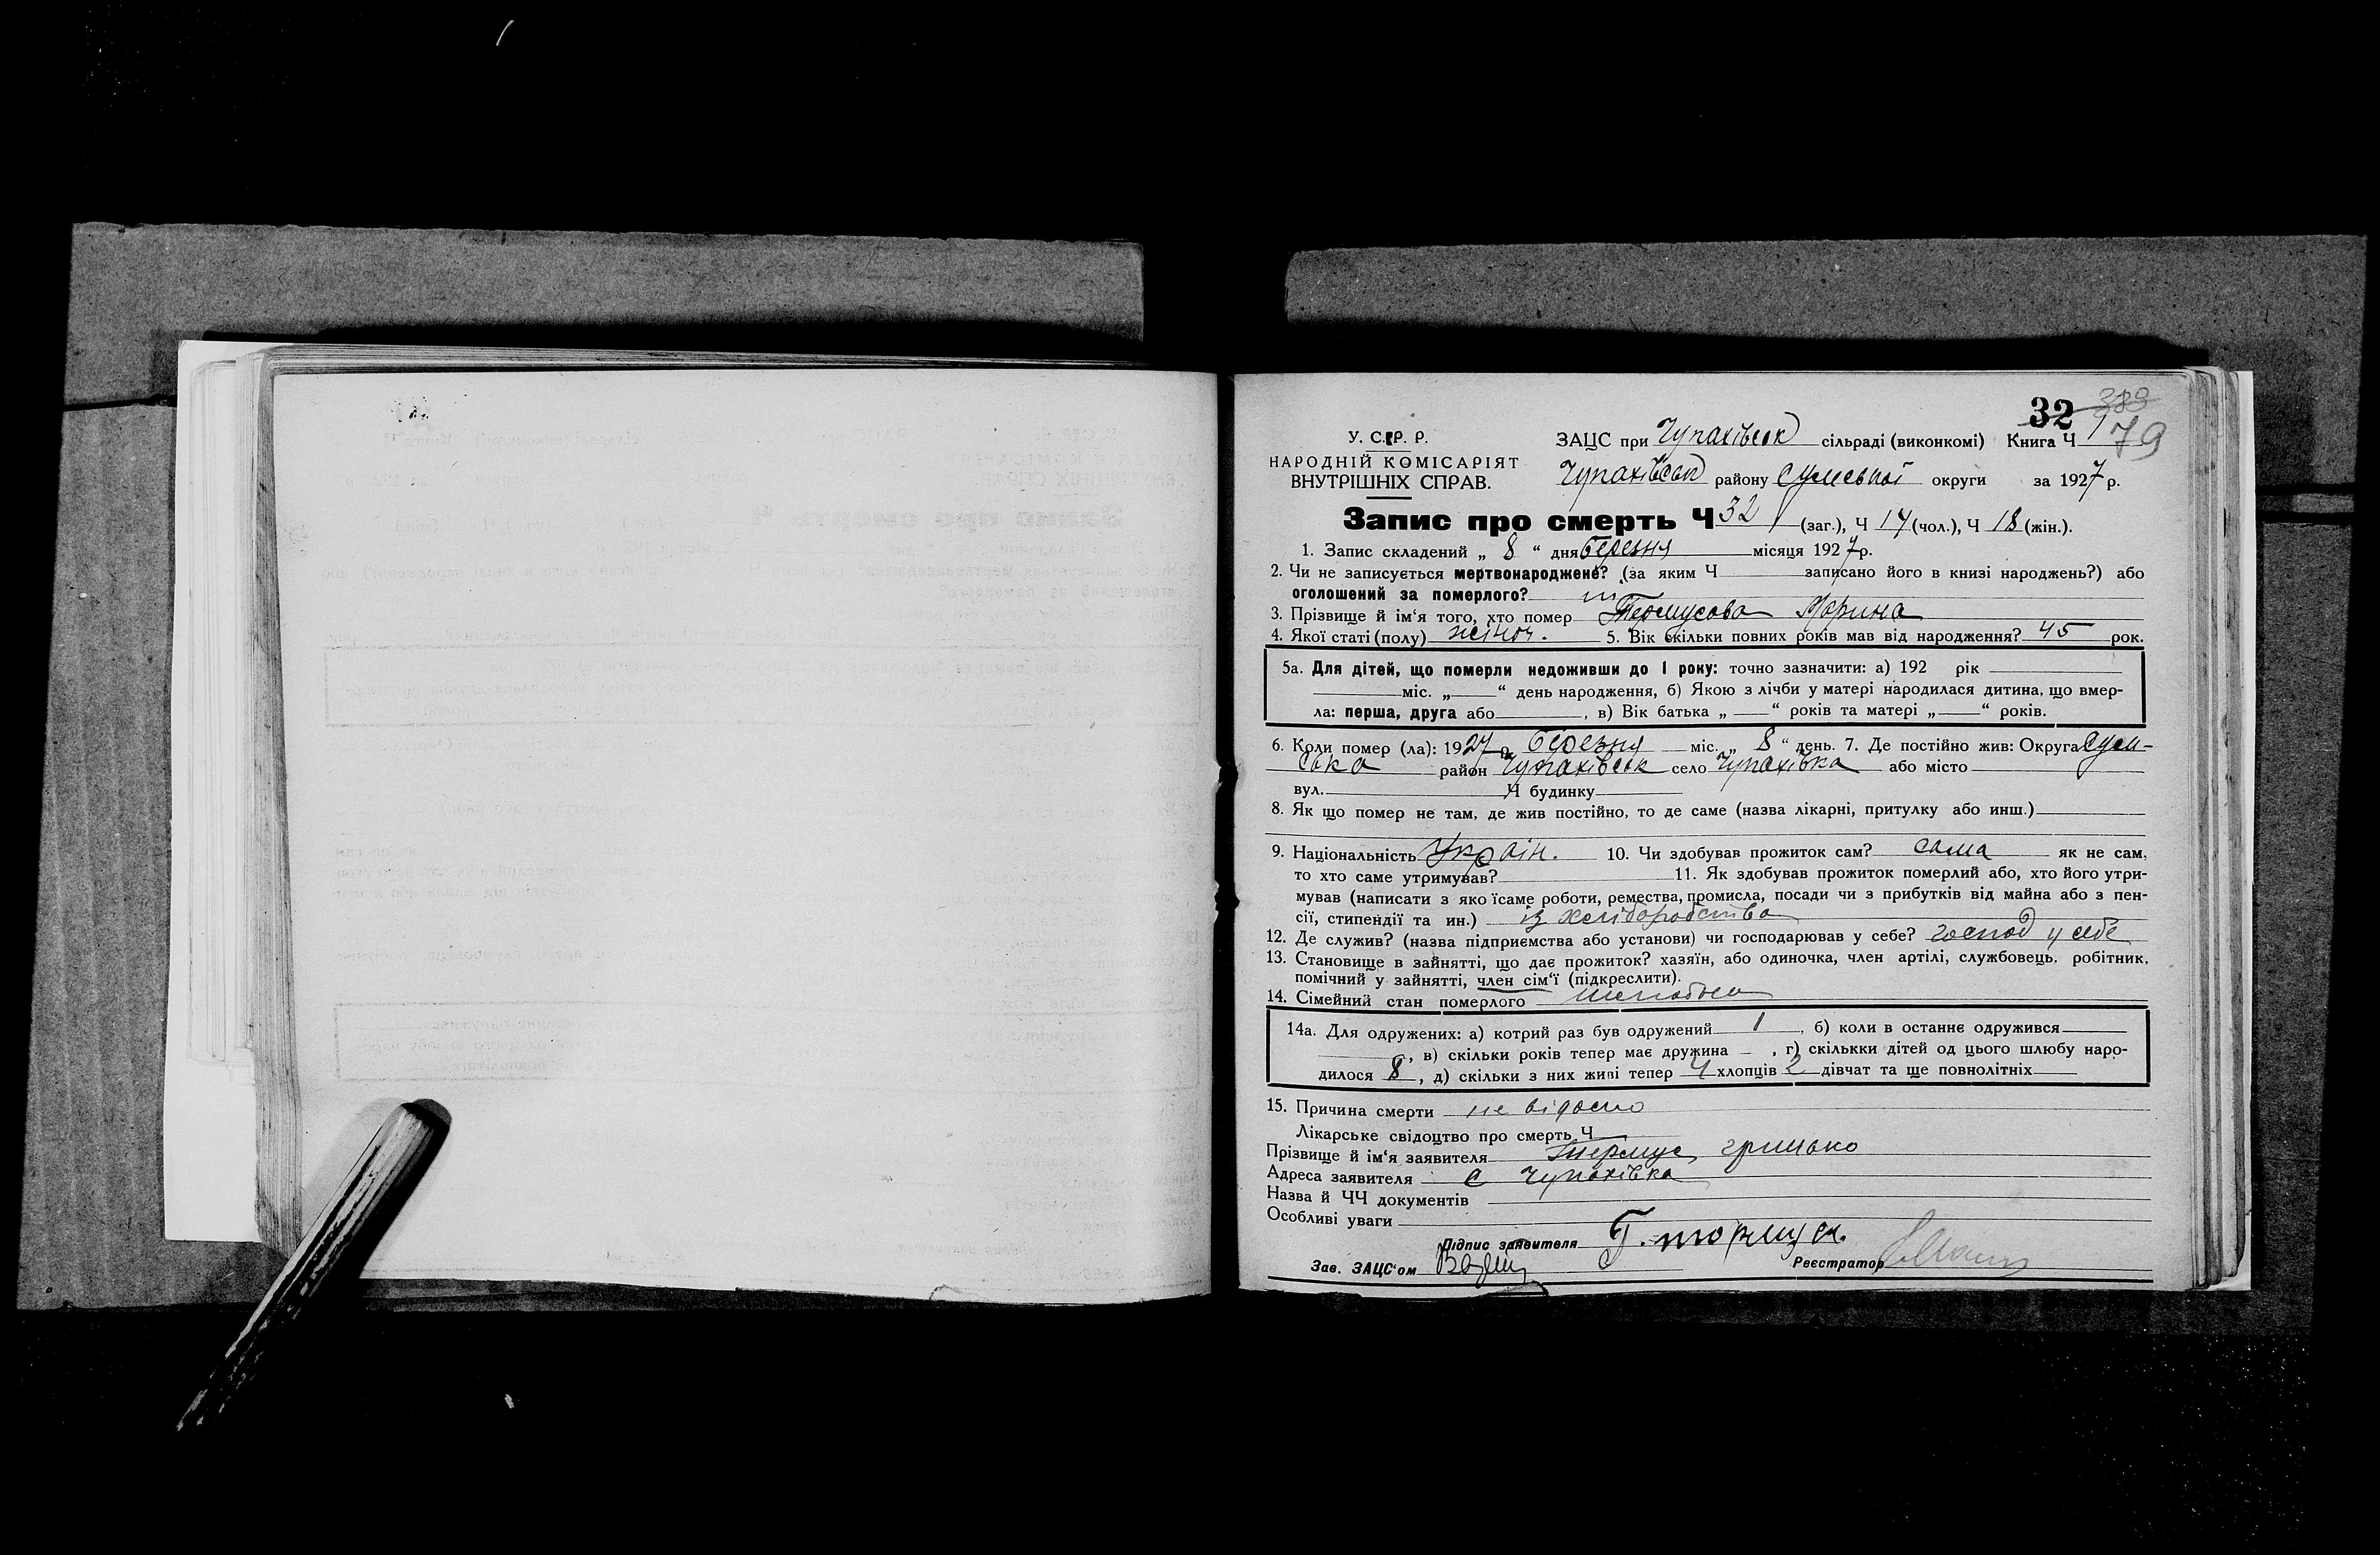 32 389
79
У. С. Р. Р.
НАРОДНІЙ КОМІСАРІЯТ
ВНУТРІШНІХ СПРАВ.
ЗАЦС при Чупахівськ сільраді (виконкомі) Книга Ч 1
Чупахівськ району Сумської округи за 1927 р.
Запис про смерть Ч 32 (заг.), Ч 14 (чол.), Ч 18 (жін.).
1. Запис складений „ 8 “ дня березня місяця 1927 р.
2. Чи не записується мертвонароджене? (за яким Ч записано його в книзі народжень?) або
оголошений за померлого? ні
3. Прізвище й ім‘я того, хто помер Термусова Марина
4. Якої статі (полу) жіноч. 5. Вік скільки повних років мав від народження? 45 рок.
5а. Для дітей, що померли недоживши до 1 року: точно зазначити: а) 192 рік
міс. „ “ день народження, б) Якою з лічби у матері народилася дитина, що вмер-
ла: перша, друга або , в) Вік батька „ “ років та матері „ “ років.
6. Коли помер (ла): 1927 р. березня міс. „ 8 “ день. 7. Де постійно жив: Округа Сум-
ська район Чупахівськ село Чупахівка або місто
вул. Ч будинку
8. Як що помер не там, де жив постійно, то де саме (назва лікарні, притулку або инш.)
9. Національність Україн. 10. Чи здобував прожиток сам? сама як не сам,
то хто саме утримував? 11. Як здобував прожиток померлий або, хто його утри-
мував (написати з яко їсаме роботи, ремества, промисла, посади чи з прибутків від майна або з пен-
сії, стипендії та ин.) із хліборобства
12. Де служив? (назва підприємства або установи) чи господарював у себе? господ у себе
13. Становище в зайнятті, що дає прожиток? хазяїн, або одиночка, член артілі, службовець, робітник,
помічний у зайнятті, член сім‘ї (підкреслити).
14. Сімейний стан померлого шлюбна
14а. Для одружених: а) котрий раз був одружений 1 , б) коли в останнє одружився
, в) скільки років тепер має дружина – , г) скількки дітей од цього шлюбу наро-
дилося 8 , д) скільки з них живі тепер 4 хлопців 2 дівчат та ще повнолітніх
15. Причина смерти не відомо
Лікарське свідоцтво про смерть Ч
Прізвище й ім‘я заявителя Термус, грицько
Адреса заявителя с Чупахівка
Назва й ЧЧ документів
Особливі уваги
Підпис заявителя Г. тормуса.
Зав. ЗАЦС‘ом
Реєстратор